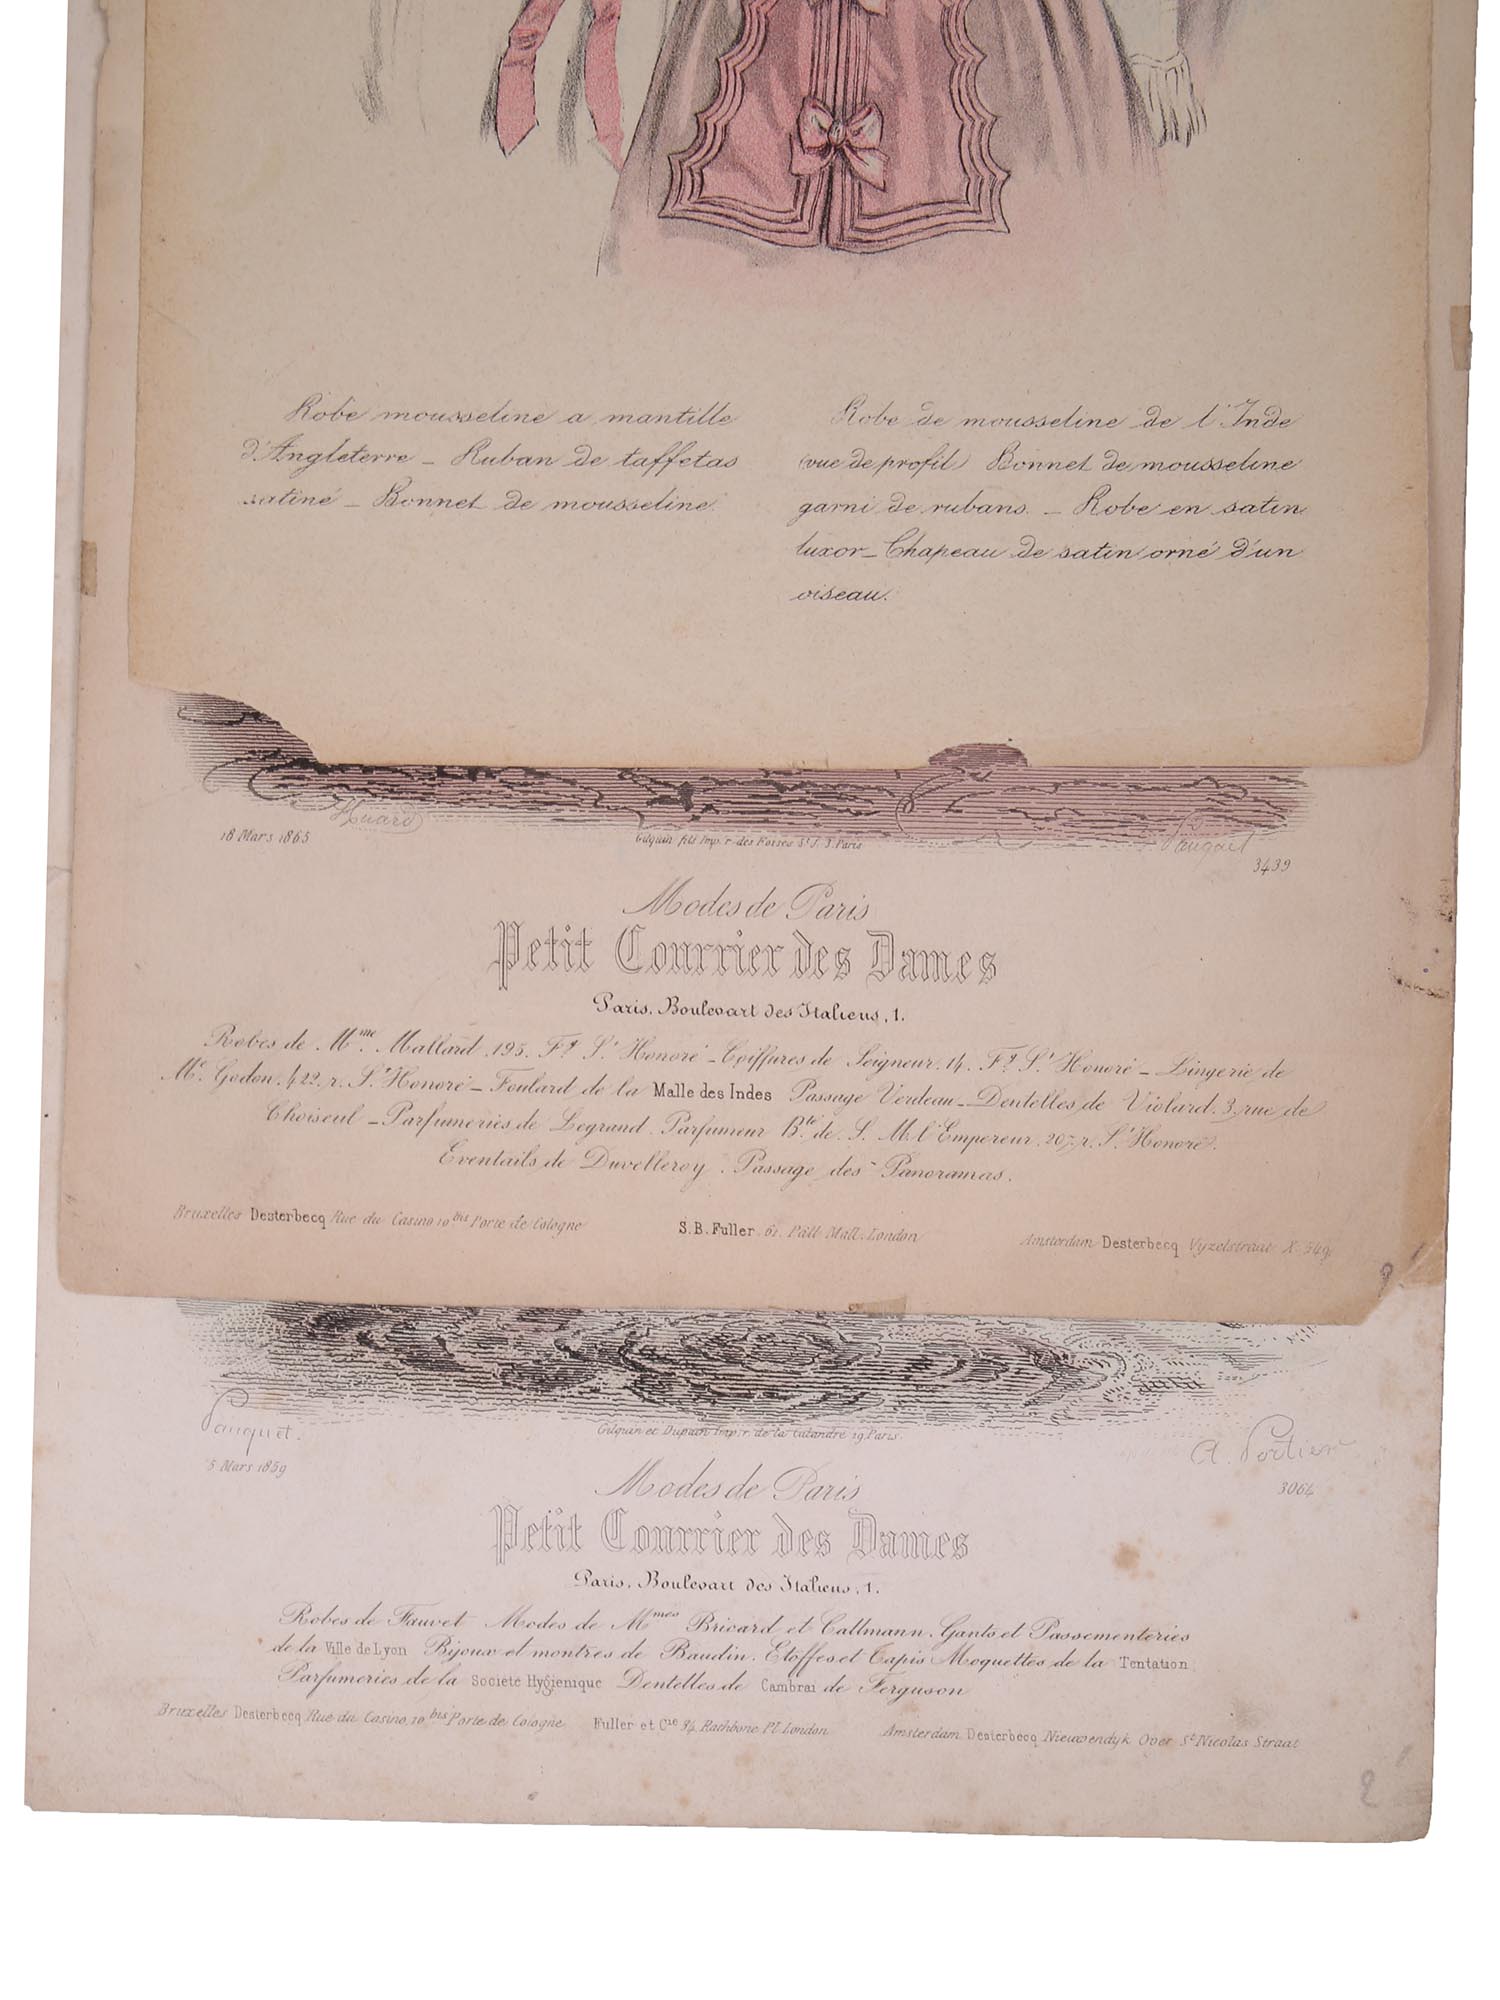 Robe mousseline a mantille
d'Angleterre _ Ruban de taffetas
satiné _ Bonnet de mousseline.
Robe de mousseline de l'Inde
(vue de profil) Bonnet de mousseline
garni de rubans. _ Robe en satin
luxor _ Chapeau de satin orné d'un
oiseau.
Huard
18 Mars 1865
Gilquin fils Imp. r. des Fossés St. J. 3. Paris
Pauquet
3439
Modes de Paris
Petit Courrier des Dames
Paris, Boulevart des Italiens, 1.
Robes de Mme. Mallard 195. Fg. St. Honoré _ Coiffures de Seigneur. 14. Fg. St. Honoré _ Lingerie de
Me. Godon. 422. r. St. Honoré _ Foulard de la Malle des Indes Passage Verdeau _ Dentelles de Violard. 3, rue de
Choiseul _ Parfumeries de Legrand. Parfumeur Bté. de S. M. l'Empereur. 207. r. St. Honoré.
Eventails de Duvelleroy. Passage des Panoramas.
Bruxelles Desterbecq Rue du Casino 10 bis Porte de Cologne
S. B. Fuller. 61. Pall Mall. London
Amsterdam Desterbecq Vyzelstraat X. 549.
Pauquet.
Gilquin et Dupain Imp. r. de la Calandre 19. Paris.
A. Portier
5 Mars 1859
3064
Modes de Paris
Petit Courrier des Dames
Paris, Boulevart des Italiens, 1.
Robes de Fauvet Modes de Mmes Bricard et Callmann. Gants et Passementeries
de la Ville de Lyon Bijoux et montres de Baudin. Etoffes et Tapis Moquettes de la Tentation
Parfumeries de la Société Hygiénique Dentelles de Cambrai de Ferguson
Bruxelles Desterbecq Rue du Casino, 10 bis Porte de Cologne
Fuller et Cie 34, Rathbone Pl. London
Amsterdam Desterbecq Nieuwendyk Over St. Nicolas Straat